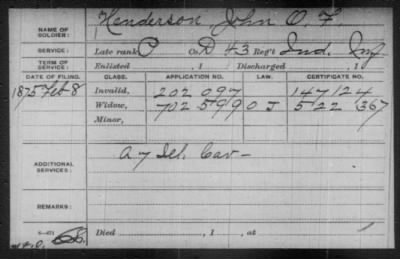 NAME OF SOLDIER: Henderson, John O. F.
SERVICE: Late rank P Co. D 43 Reg't Ind. Inf
TERM OF SERVICE: Enlisted , 1 Discharged , 1
DATE OF FILING. CLASS. APPLICATION NO. LAW. CERTIFICATE NO.
1875 Feb 8 Invalid, 202 097 147124
Widow, 702 599 O J 522 367
Minor,
ADDITIONAL SERVICES: A 7 Cav -
REMARKS:
Died , 1 , at